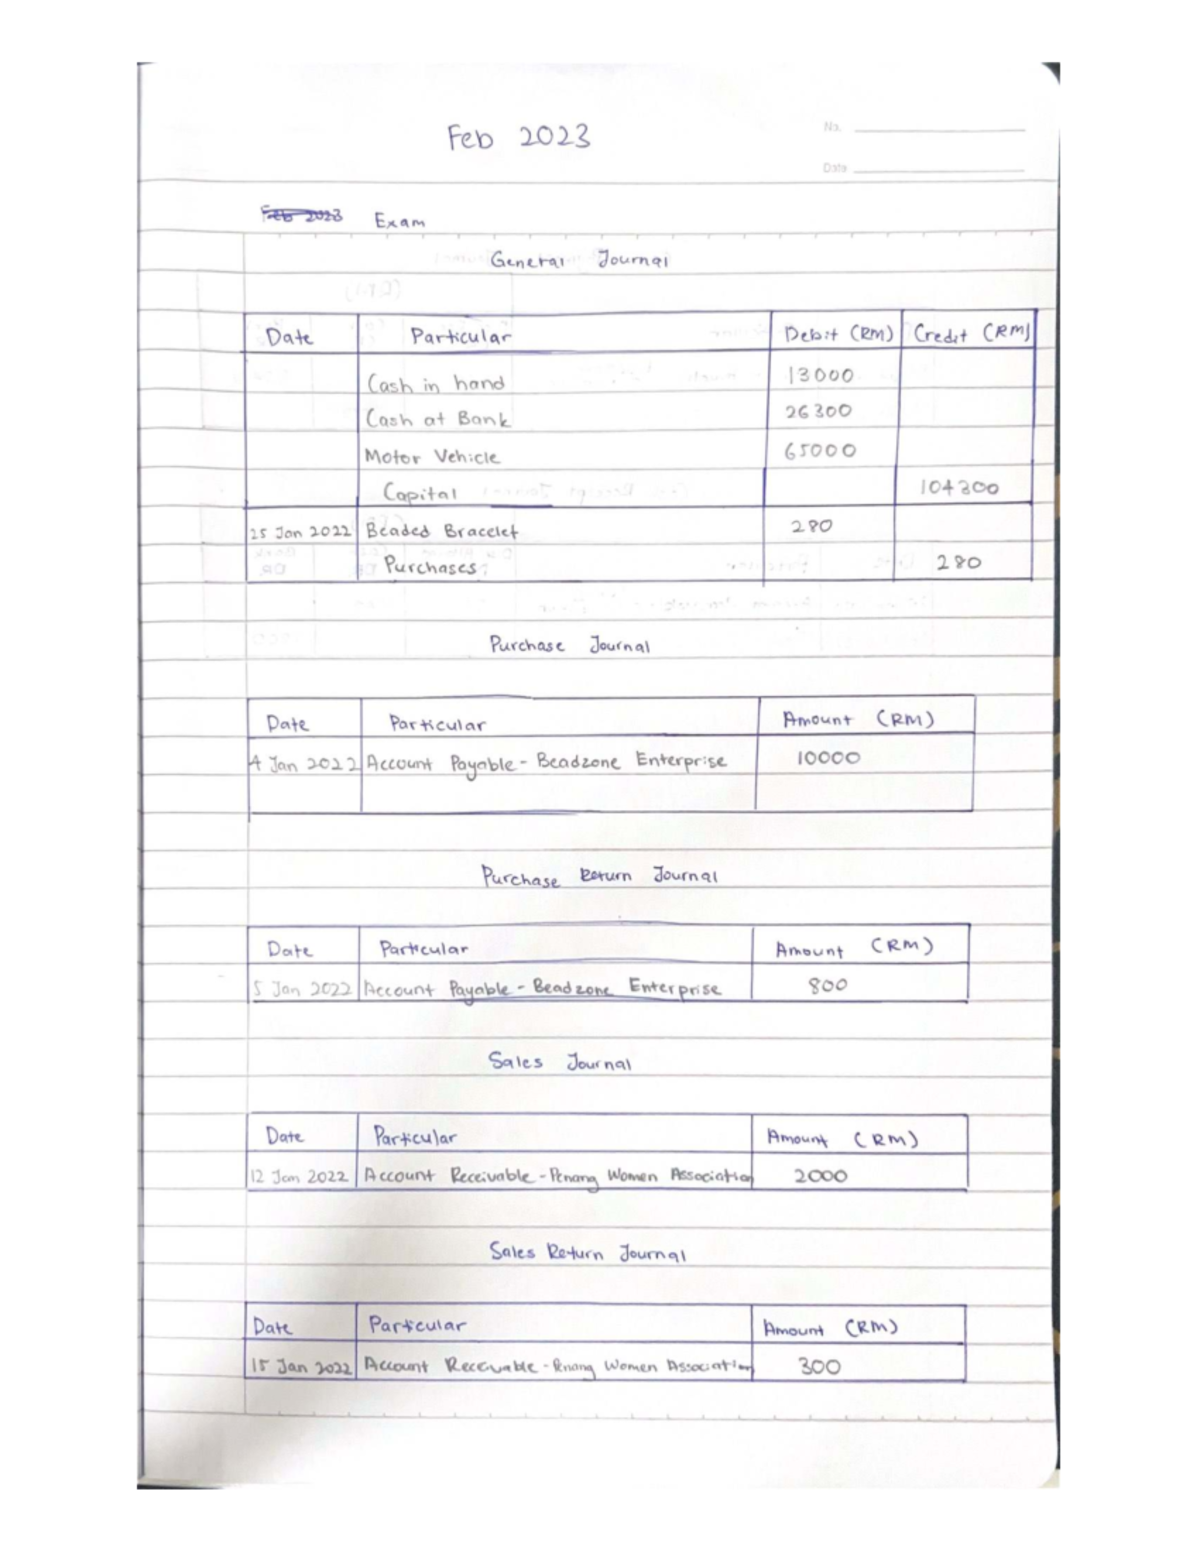 Feb 2023
No.
Date
Feb 2023 Exam
General Journal
Date Particular Debit (RM) Credit (RM)
Cash in hand 13000
Cash at Bank 26300
Motor Vehicle 65000
Capital 104300
25 Jan 2022 Beaded Bracelet 280
Purchases 280
Purchase Journal
Date Particular Amount (RM)
4 Jan 2022 Account Payable - Beadzone Enterprise 10000
Purchase Return Journal
Date Particular Amount (RM)
5 Jan 2022 Account Payable - Beadzone Enterprise 800
Sales Journal
Date Particular Amount (RM)
12 Jan 2022 Account Receivable - Penang Women Association 2000
Sales Return Journal
Date Particular Amount (RM)
15 Jan 2022 Account Receivable - Penang Women Association 300